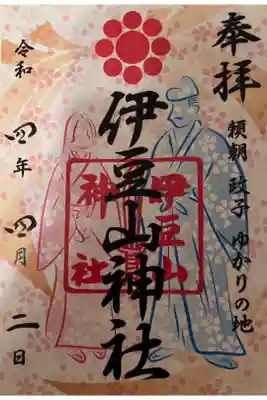 奉拝
頼朝 政子 ゆかりの地
伊豆山神社
伊豆山
神社
令和四年四月二日